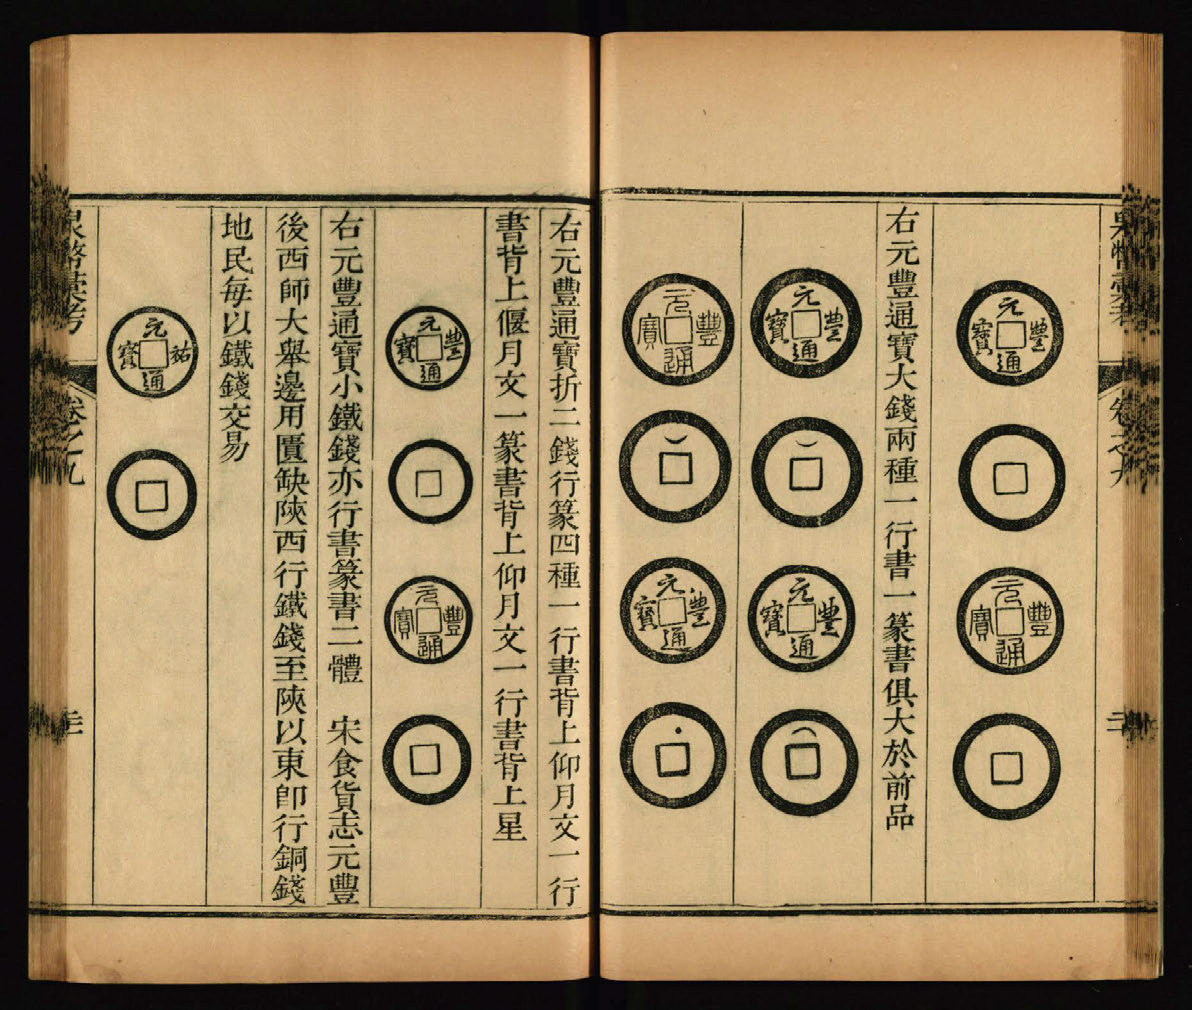 元豐通寶
元豐通寶
右元豐通寶大錢兩種一行書一篆書俱大於前品
元豐通寶
元豐通寶
元豐通寶
元豐通寶
右元豐通寶折二錢行篆四種一行書背上仰月文一行
書背上偃月文一篆書背上仰月文一行書背上星
元豐通寶
元豐通寶
右元豐通寶小鐵錢亦行書篆書二體　宋食貨志元豐
後西師大舉邊用匱缺陝西行鐵錢至陝以東卽行銅錢
地民每以鐵錢交易
元祐通寶
泉幣彙考
卷之九